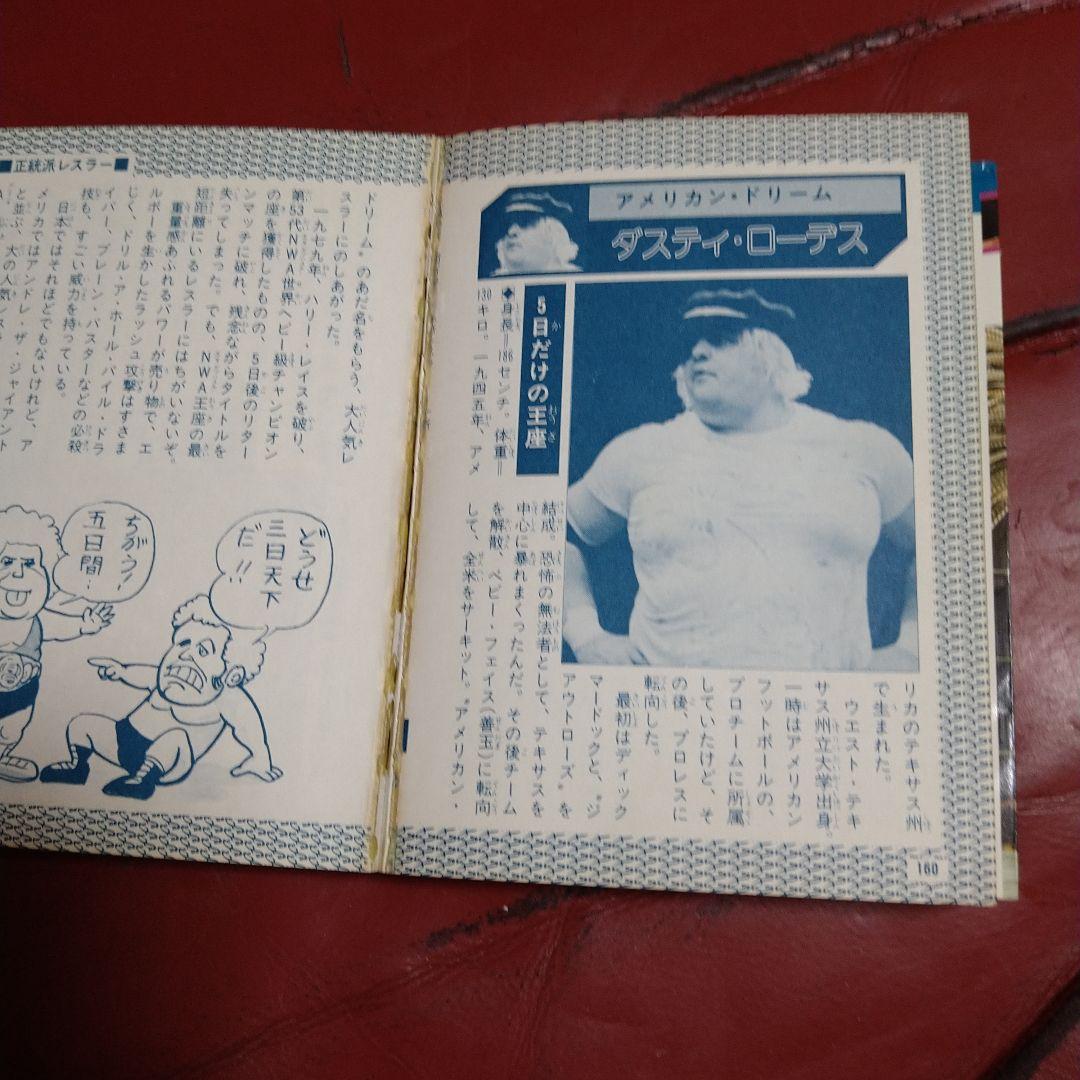 アメリカン・ドリーム
ダスティ・ローデス
5日だけの王座
◆身長=186センチ。体重=
130キロ。一九四五年、アメ
リカのテキサス州
で生まれた。
ウエスト・テキ
サス州立大学出身。
一時はアメリカン
フットボールの、
プロチームに所属
していたけど、そ
の後、プロレスに
転向した。
最初はディック
マードックと、“ジ
アウトローズ”を
結成。恐怖の無法者として、テキサスを
中心に暴れまくったんだ。その後チーム
を解散、ベビー・フェイス(善玉)に転向
して、全米をサーキット。“アメリカン・
160
■正統派レスラー■
ドリーム”のあだ名をもらう、大人気レ
スラーにのしあがった。
一九七九年、ハリー・レイスを破り、
第53代NWA世界ヘビー級チャンピオン
の座を獲得したものの、5日後のリター
ンマッチに破れ、残念ながらタイトルを
失ってしまった。でも、NWA王座の最
短距離にいるレスラーにはちがいないぞ。
重量感あふれるパワーが売り物で、エ
ルボーを生かしたラッシュ攻撃はすさま
じく、ドリル・ア・ホール・パイル・ドラ
イバー、ブレーン・バスターなどの必殺
技も、すごい威力を持っている。
日本ではそれほどでもないけれど、ア
メリカではアンドレ・ザ・ジャイアント
と並ぶ、大の人気レスラ
どうせ
三日天下
だ!!
ちがう!
五日間…